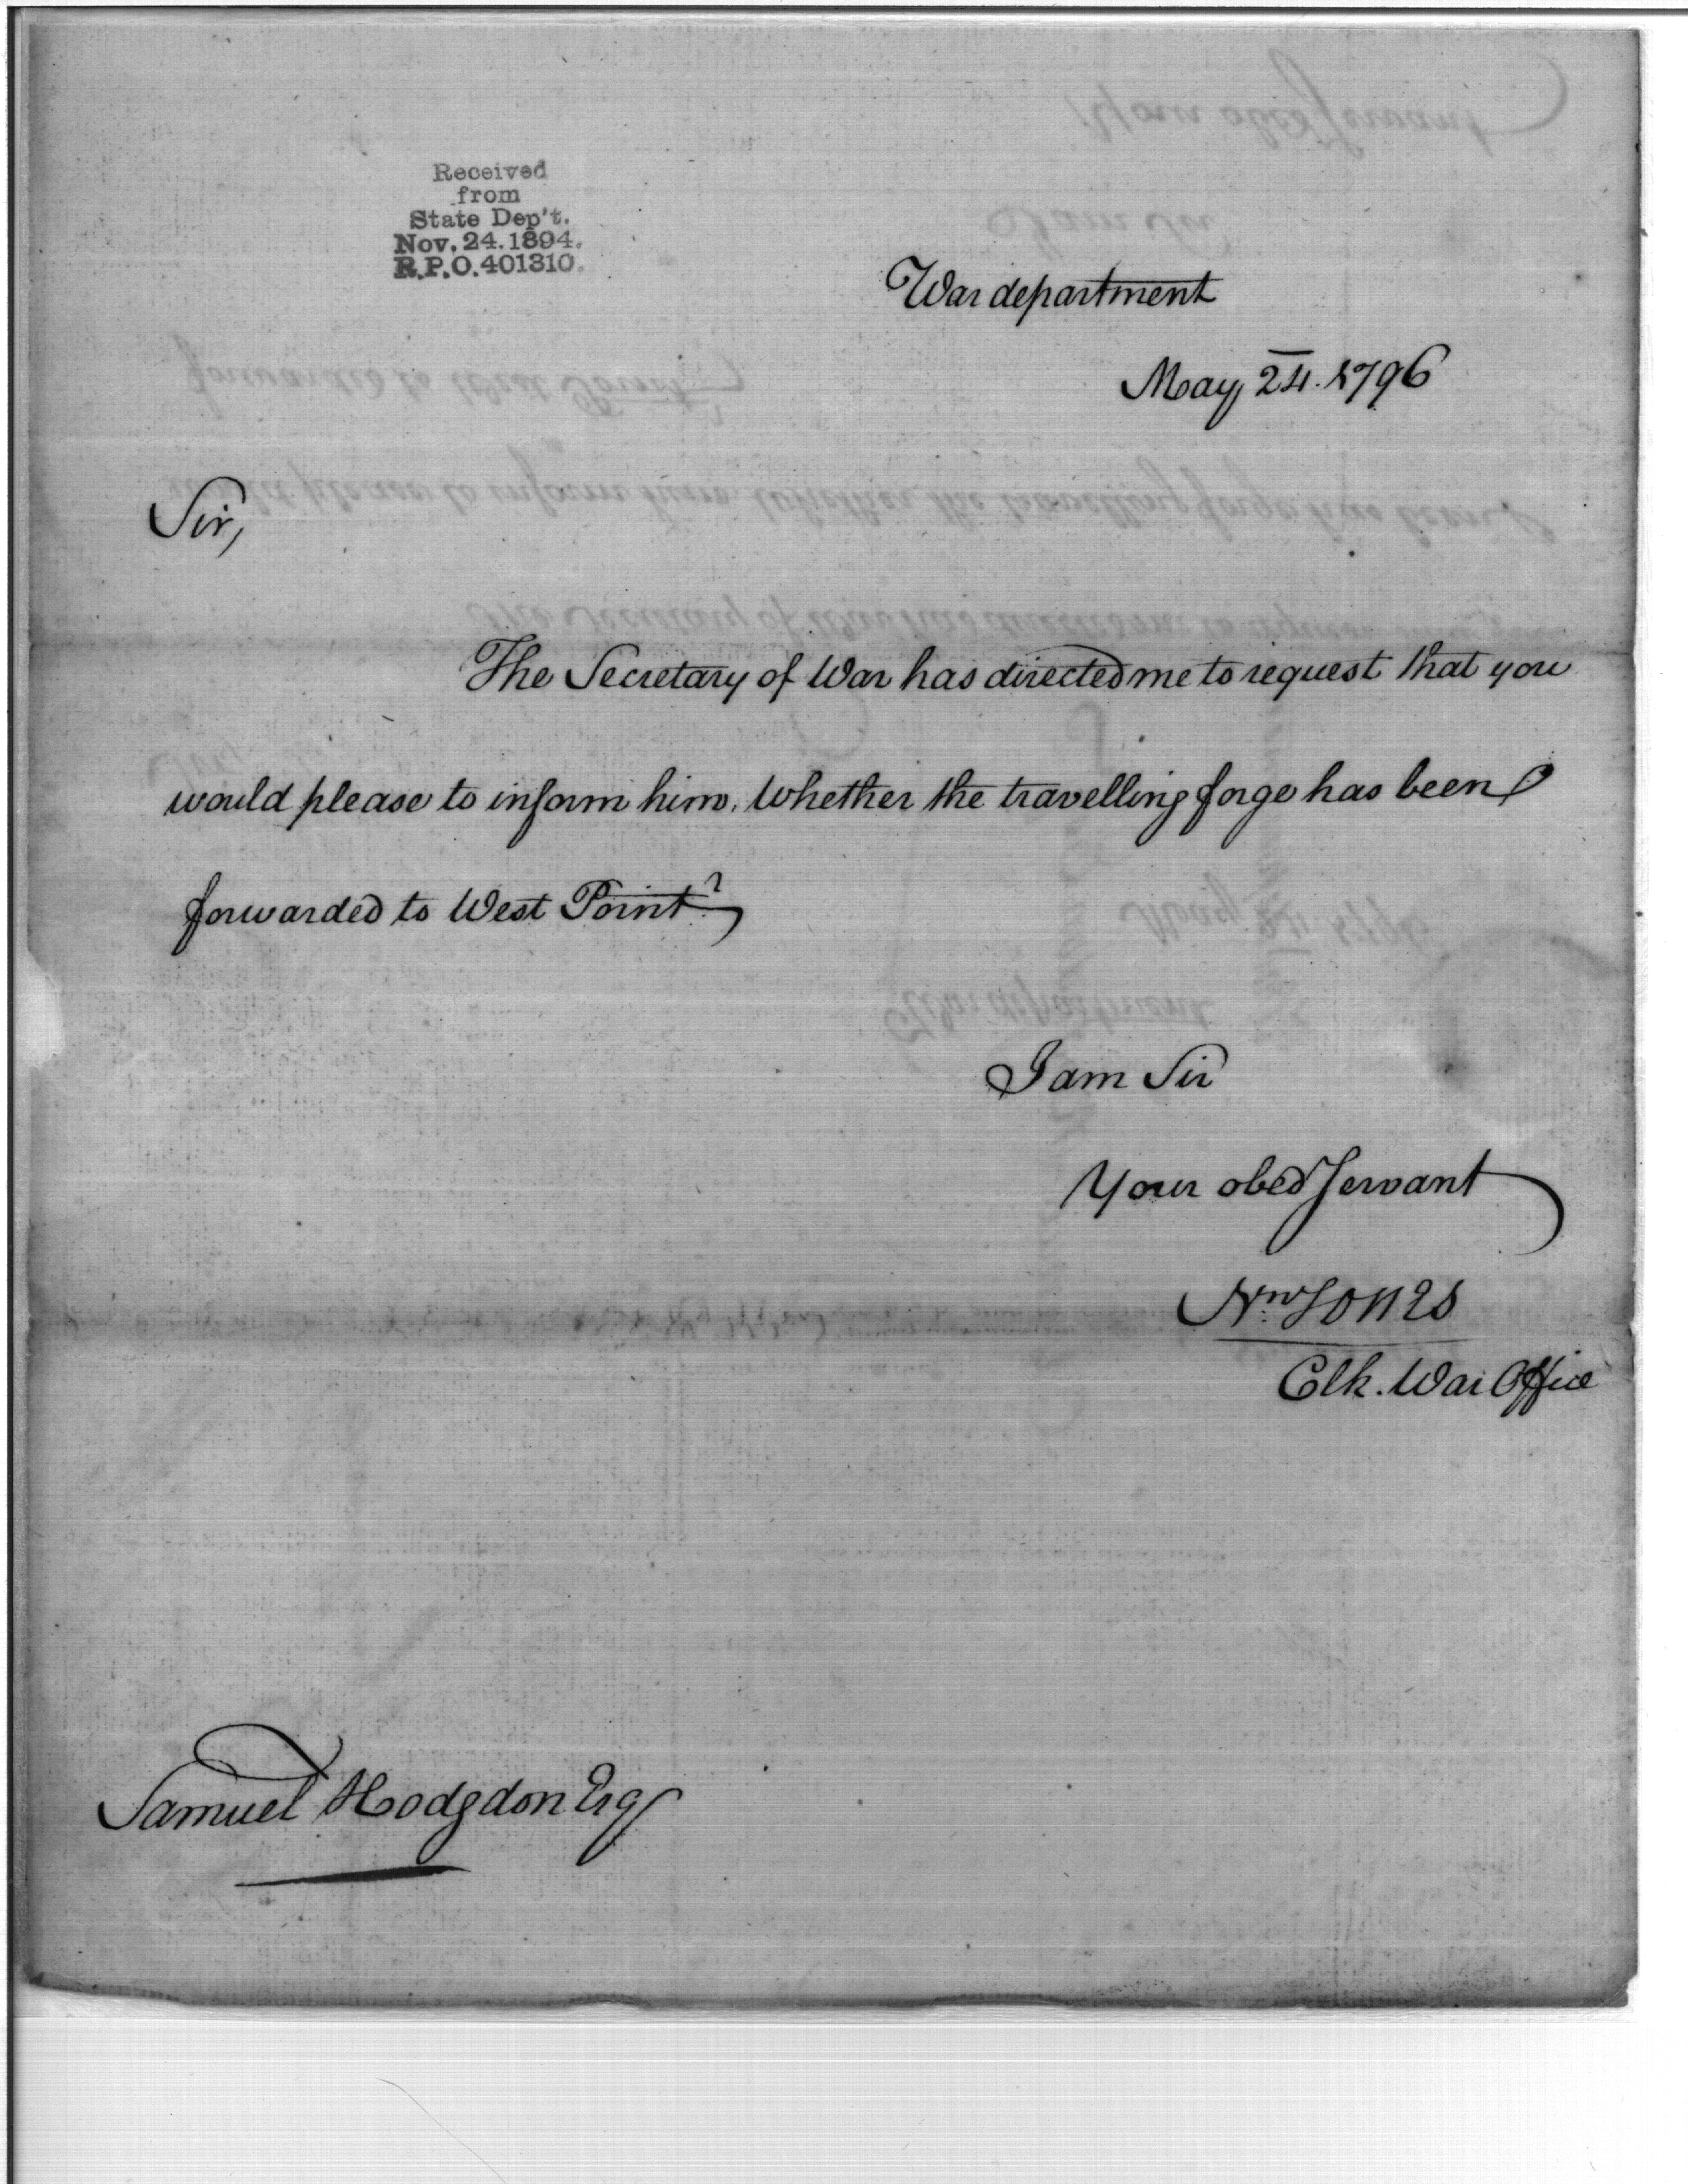 Received
from
State Dep't.
Nov. 24. 1894.
R.P.O. 401310.
War department
May 24. 1796
Sir,
The Secretary of War has directed me to request that you
would please to inform him, whether the travelling forge has been
forwarded to West Point?
I am Sir
Your obed Servant
Nw. Jones
Clk. War Office
Samuel Hodgdon Esq